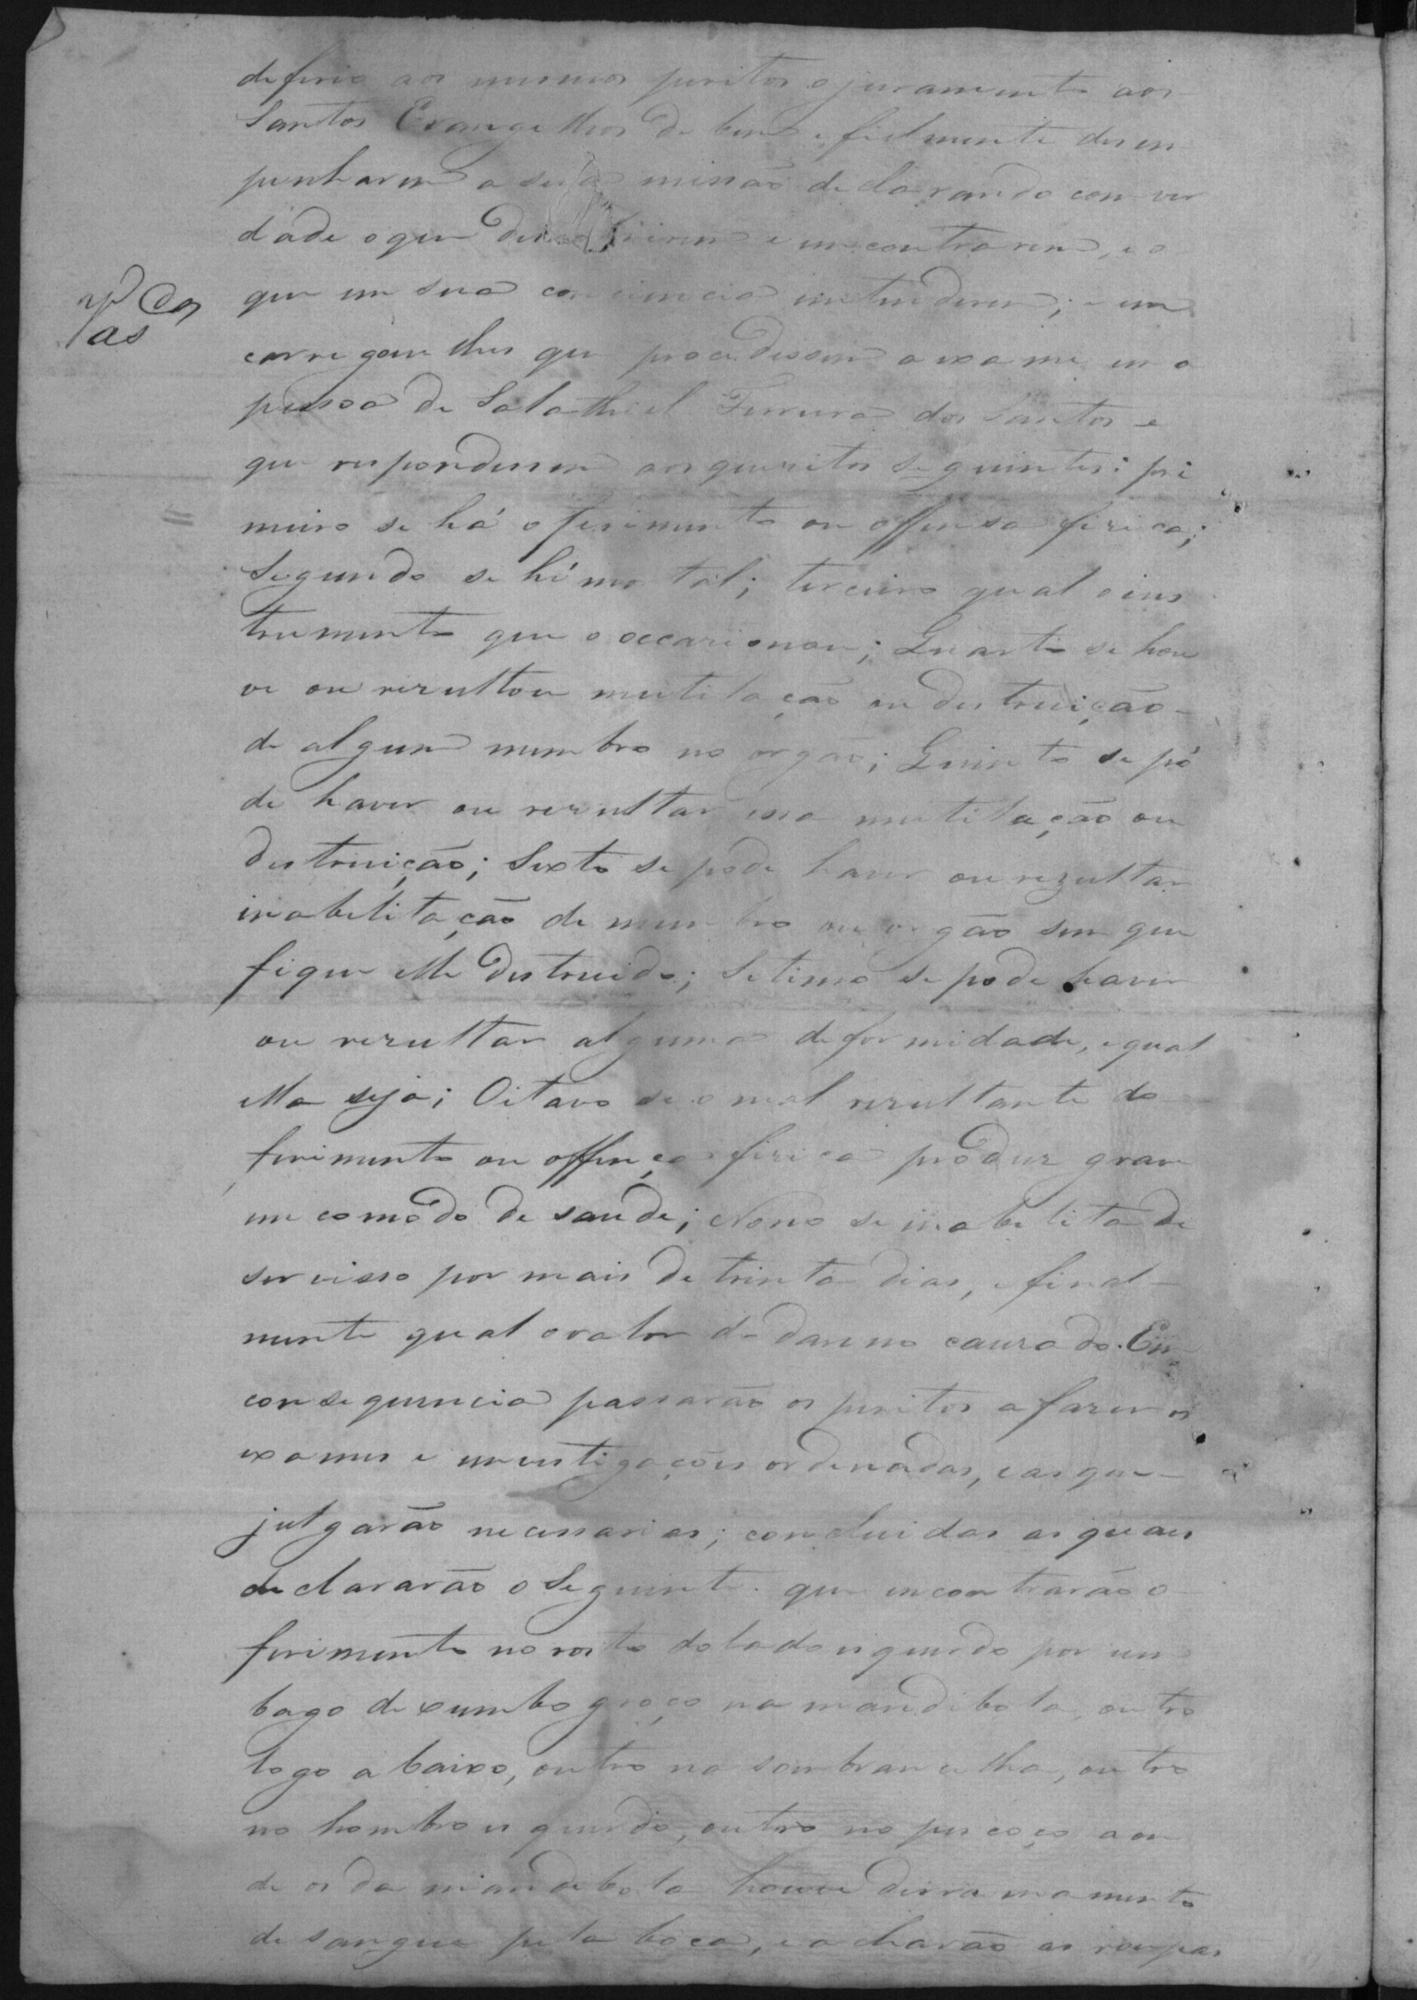 deferio aos mesmos peritos o juramento aos
Santos Evangelhos de bem e fielmente desem
penharem a sua missão declarando com ver
dade o que descobrirem e encontrarem, e o
que em sua conciencia entenderem; e en
carregou lhes que procedessem a exame em a
pessoa de Salathiel Ferreira dos Santos e
que respondessem aos quezitos seguintes: pri
meiro se há o ferimento ou offensa fizica;
Segundo se hé mortal; terceiro qual o ins
trumento que o occazionou; Quarto se hou
ve ou rezultou mutilação ou destruição
de algum membro no orgão; Quinto se pó
de haver ou rezultar essa mutilação ou
destruição; Sexto se pode haver ou rezultar
inabelitação de membro ou orgão sem que
fique elle destruido; Setimo se pode haver
ou rezultar alguma deformidade, e qual
ella seja; Oitavo se o mal rezultante do
ferimento ou offença fizica produz grave
encomodo de saude; Nono se inabelita de
servisso por mais de trinta dias, e final
mente qual o valor do danno cauzado. Em
consequencia passarão os peritos a fazer os
exames e investigações ordenadas, e as que
julgarão necessarias; concluidas as quaes
declararão o Seguinte. que encontrarão o
ferimento no rosto do lado esquerdo por um
bago de xumbo groço na mandibola, outro
logo abaixo, outro na sombrancelha, outro
no hombro esquerdo, outro no pescoço aon
de os da mandibola houve derramamento
de sangue pela boca, e acharão as roupas